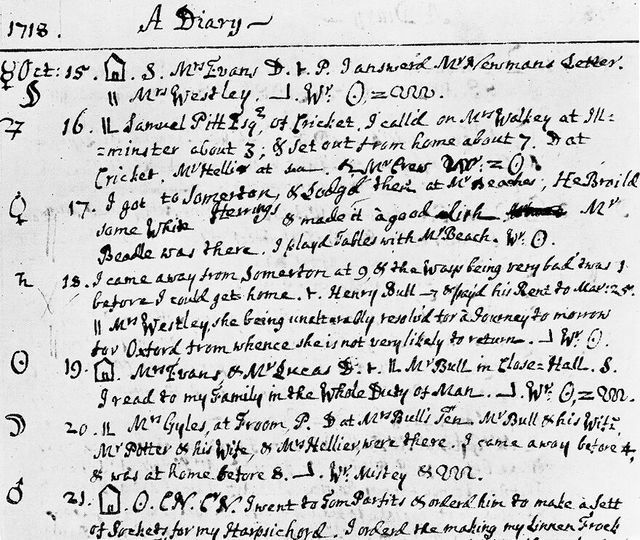 1718. A Diary
☿ Oct: 15. S. Mrs Evans D. & P. I answerd Mr Newmans Letter.
☽ || Mrs Westley ⅃. Wr. ☉ = ♒.
♃ 16. || Samuel Pitt Esqr, of Cricket. I calld on Mrs Walkey at Ill=
=minster about 3; & set out from home about 7. D at
Cricket. Mr Hellier at & Mr Crew Wr: = ☉.
♀ 17. I got to Somerton, & Lodgd there at Mr Beaches; He Broild
some White Herrings & made it a good dish. Mr
Beadle was there. I playd Tables with Mr Beach. Wr ☉.
♄ 18. I came away from Somerton at 9, & the Ways being very bad twas 1
before I could get home. Henry Bull & payd his Rent to Mar: 25.
|| Mrs Westley, she being unalterably resolvd for a Journey to morrow
for Oxford from whence she is not very likely to return. ⅃ Wr ☉.
☉ 19. Mrs Evans & Mr Lucas D. || Mr Bull in Close=Hall. S.
I read to my Family in the Whole Duty of Man. ⅃. Wr ☉ = ♒.
☽ 20. || Mrs Gyles, at Froom, P. D at Mrs Bulls Ten. Mr Bull & his Wife
Mr Potter & his Wife, & Mrs Hellier, were there. I came away before 4,
& was at home before 8. ⅃. Wr. Mistey & ♒.
♂ 21. O. C.N. C.N. I went to Tom Parfits & orderd him to make a Sett
of Sockets for my Harpsichord. I orderd the making my Linnen Frock